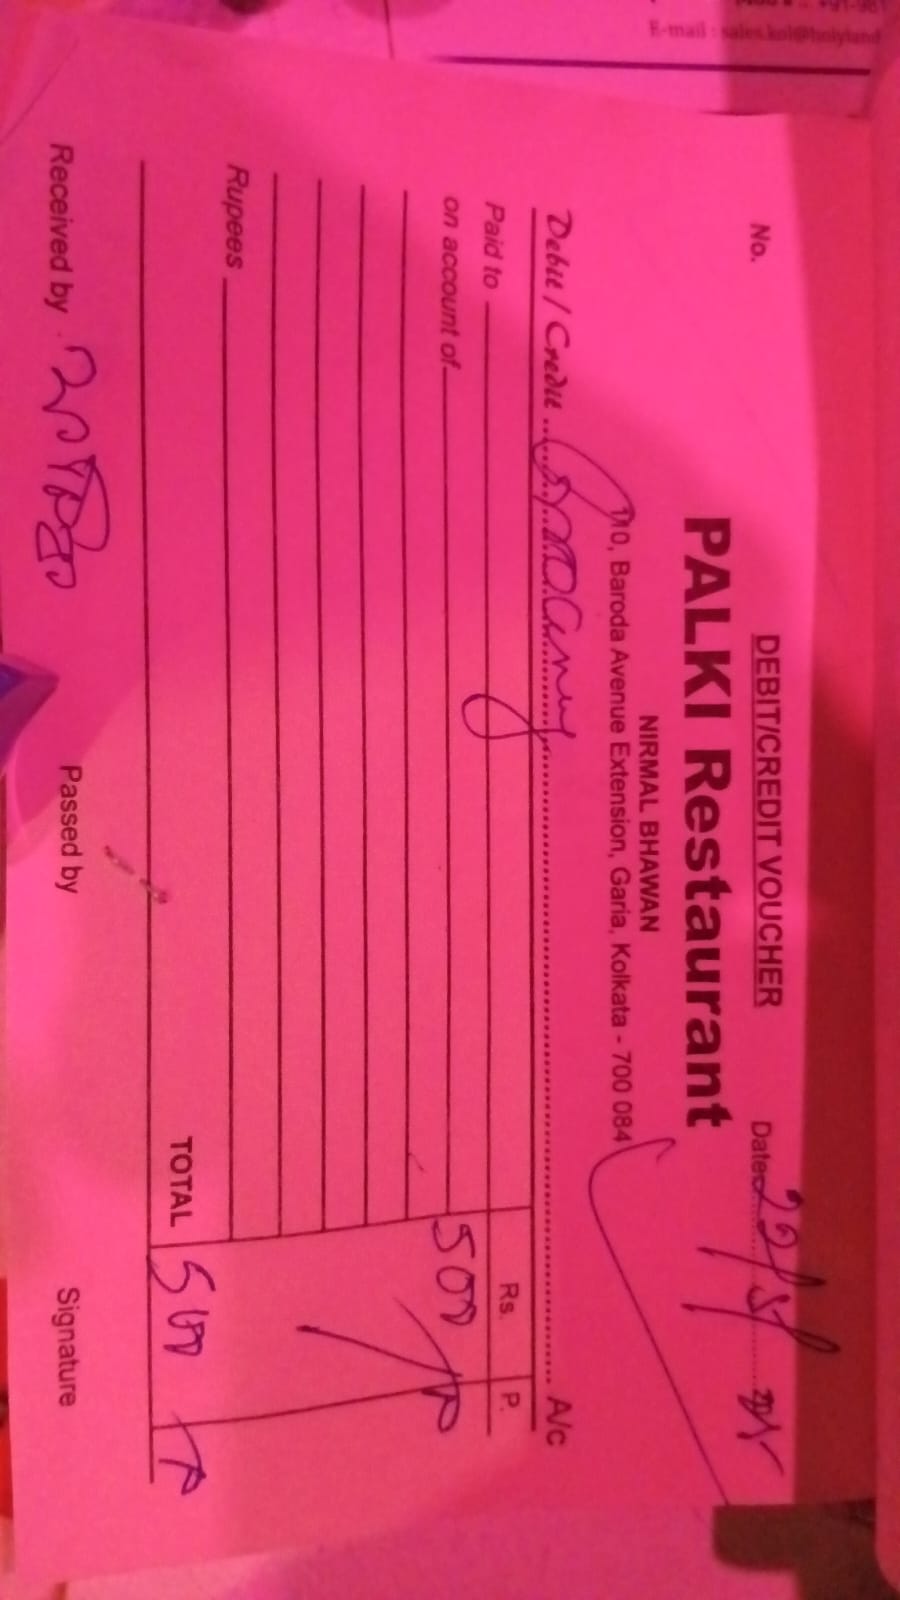 E-mail : sales.kol@holyland
DEBIT/CREDIT VOUCHER
No.
Date 22/
PALKI Restaurant
NIRMAL BHAWAN
1/10, Baroda Avenue Extension, Garia, Kolkata - 700 084
Debit / Credit A/c
Paid to Rs. P.
on account of 500
Rupees
TOTAL 500
Received by Passed by Signature